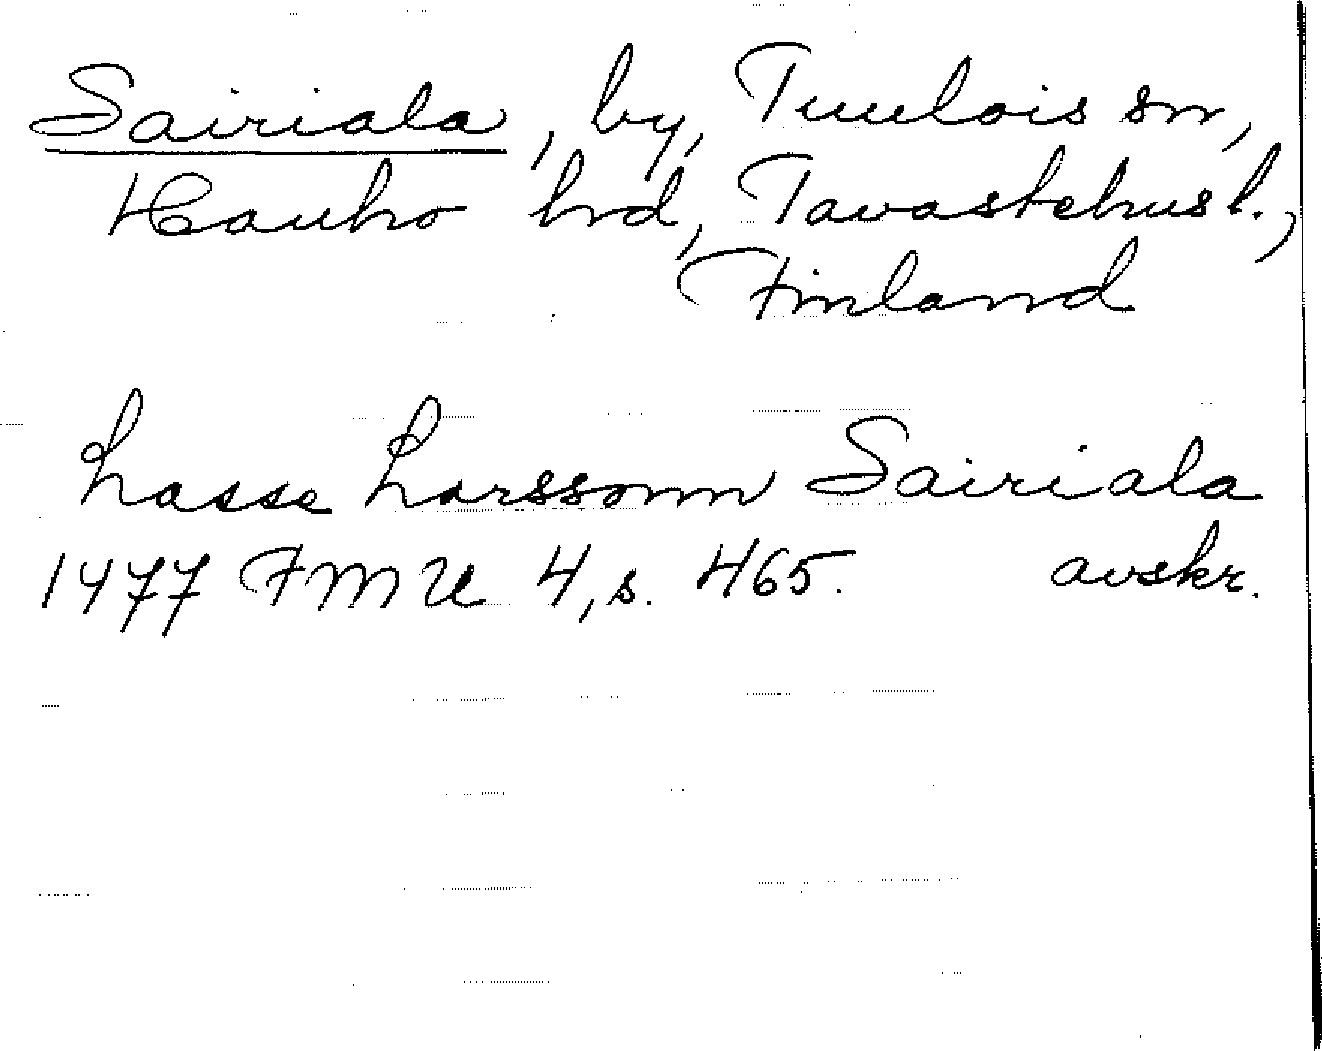 Sairiala, by, Tuulois sn,
Hauho hrd, Tavastehus l.,
Finland
Lasse Larssonn Sairiala
1477 FMU 4, s. 465. avskr.